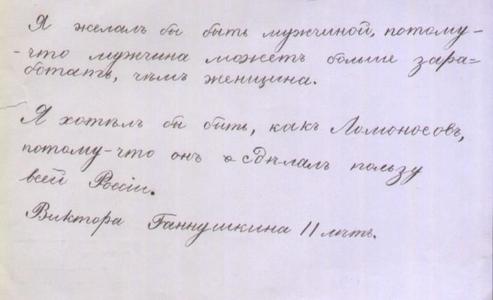 Я желалъ бы быть мужчиной, потому-
-что мужчина можетъ больше зара=
ботать, чѣмъ женщина.
Я хотѣлъ бы быть, какъ Ломоносовъ,
потому-что онъ сдѣлалъ пользу
всей Россіи.
Виктора Ганнушкина 11 лѣтъ.